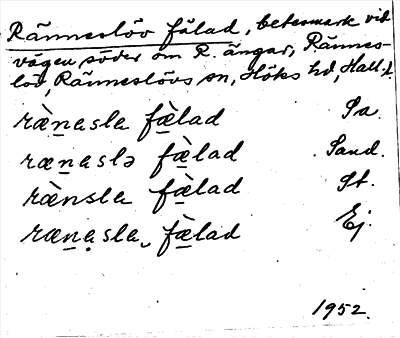 Ränneslöv fälad, betesmark vid
vägen söder om R. ängar, Rännes-
löv, Ränneslövs sn, Höks hd, Hall.l.
ræ̀n̲asla fæ̲̀lad Sa.
ræn̲aslə fæ̲̀lad Sand.
ræ̀nsla fæ̲̀lad St.
ræn̲ạsla‿ fæ̲̀lad Ej.
1952.